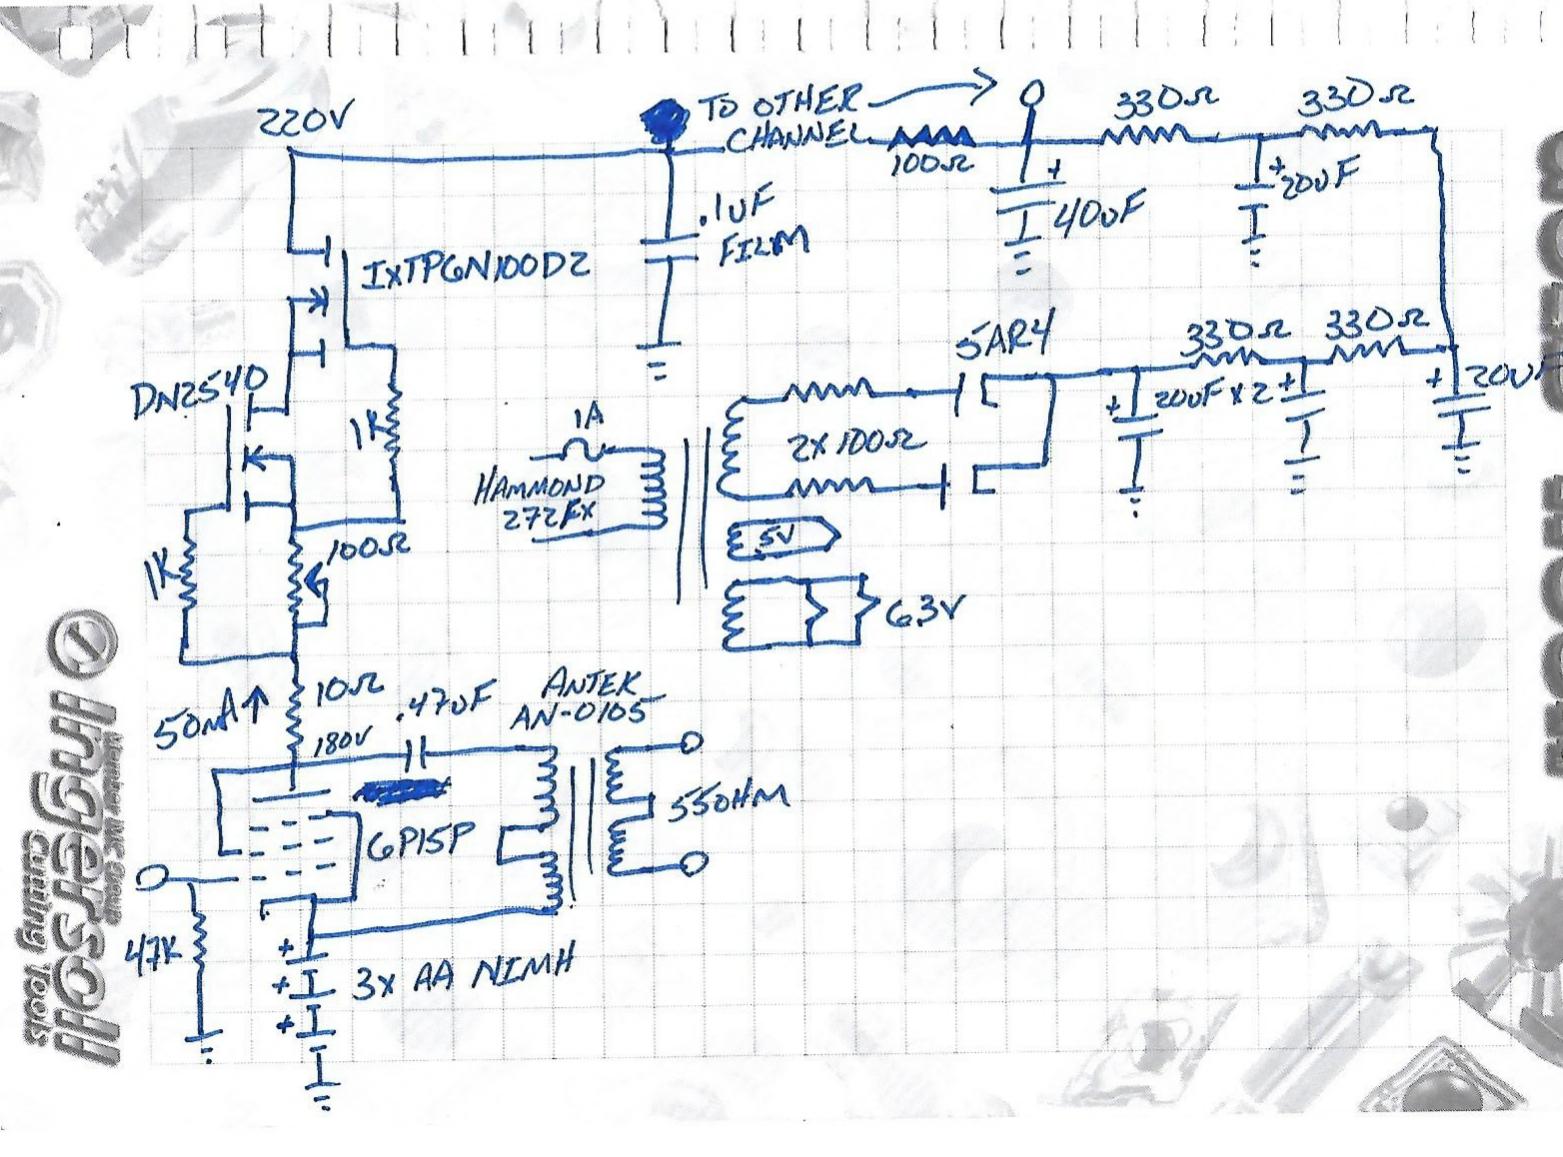 220V
TO OTHER
CHANNEL
100Ω
330Ω
330Ω
.1uF
FILM
+
40uF
+
20uF
IXTP6N100D2
DN2540
1K
1K
100Ω
5AR4
330Ω
330Ω
1A
HAMMOND
272FX
2X100Ω
+
20uF x 2
+
+
20uF
5V
6.3V
50mA ↑
10Ω
.47uF
180V
ANTEK
AN-0105
6P15P
550HM
47K
+
+
+
3x AA NIMH
Ingersoll
cutting Tools
Member IMC Group